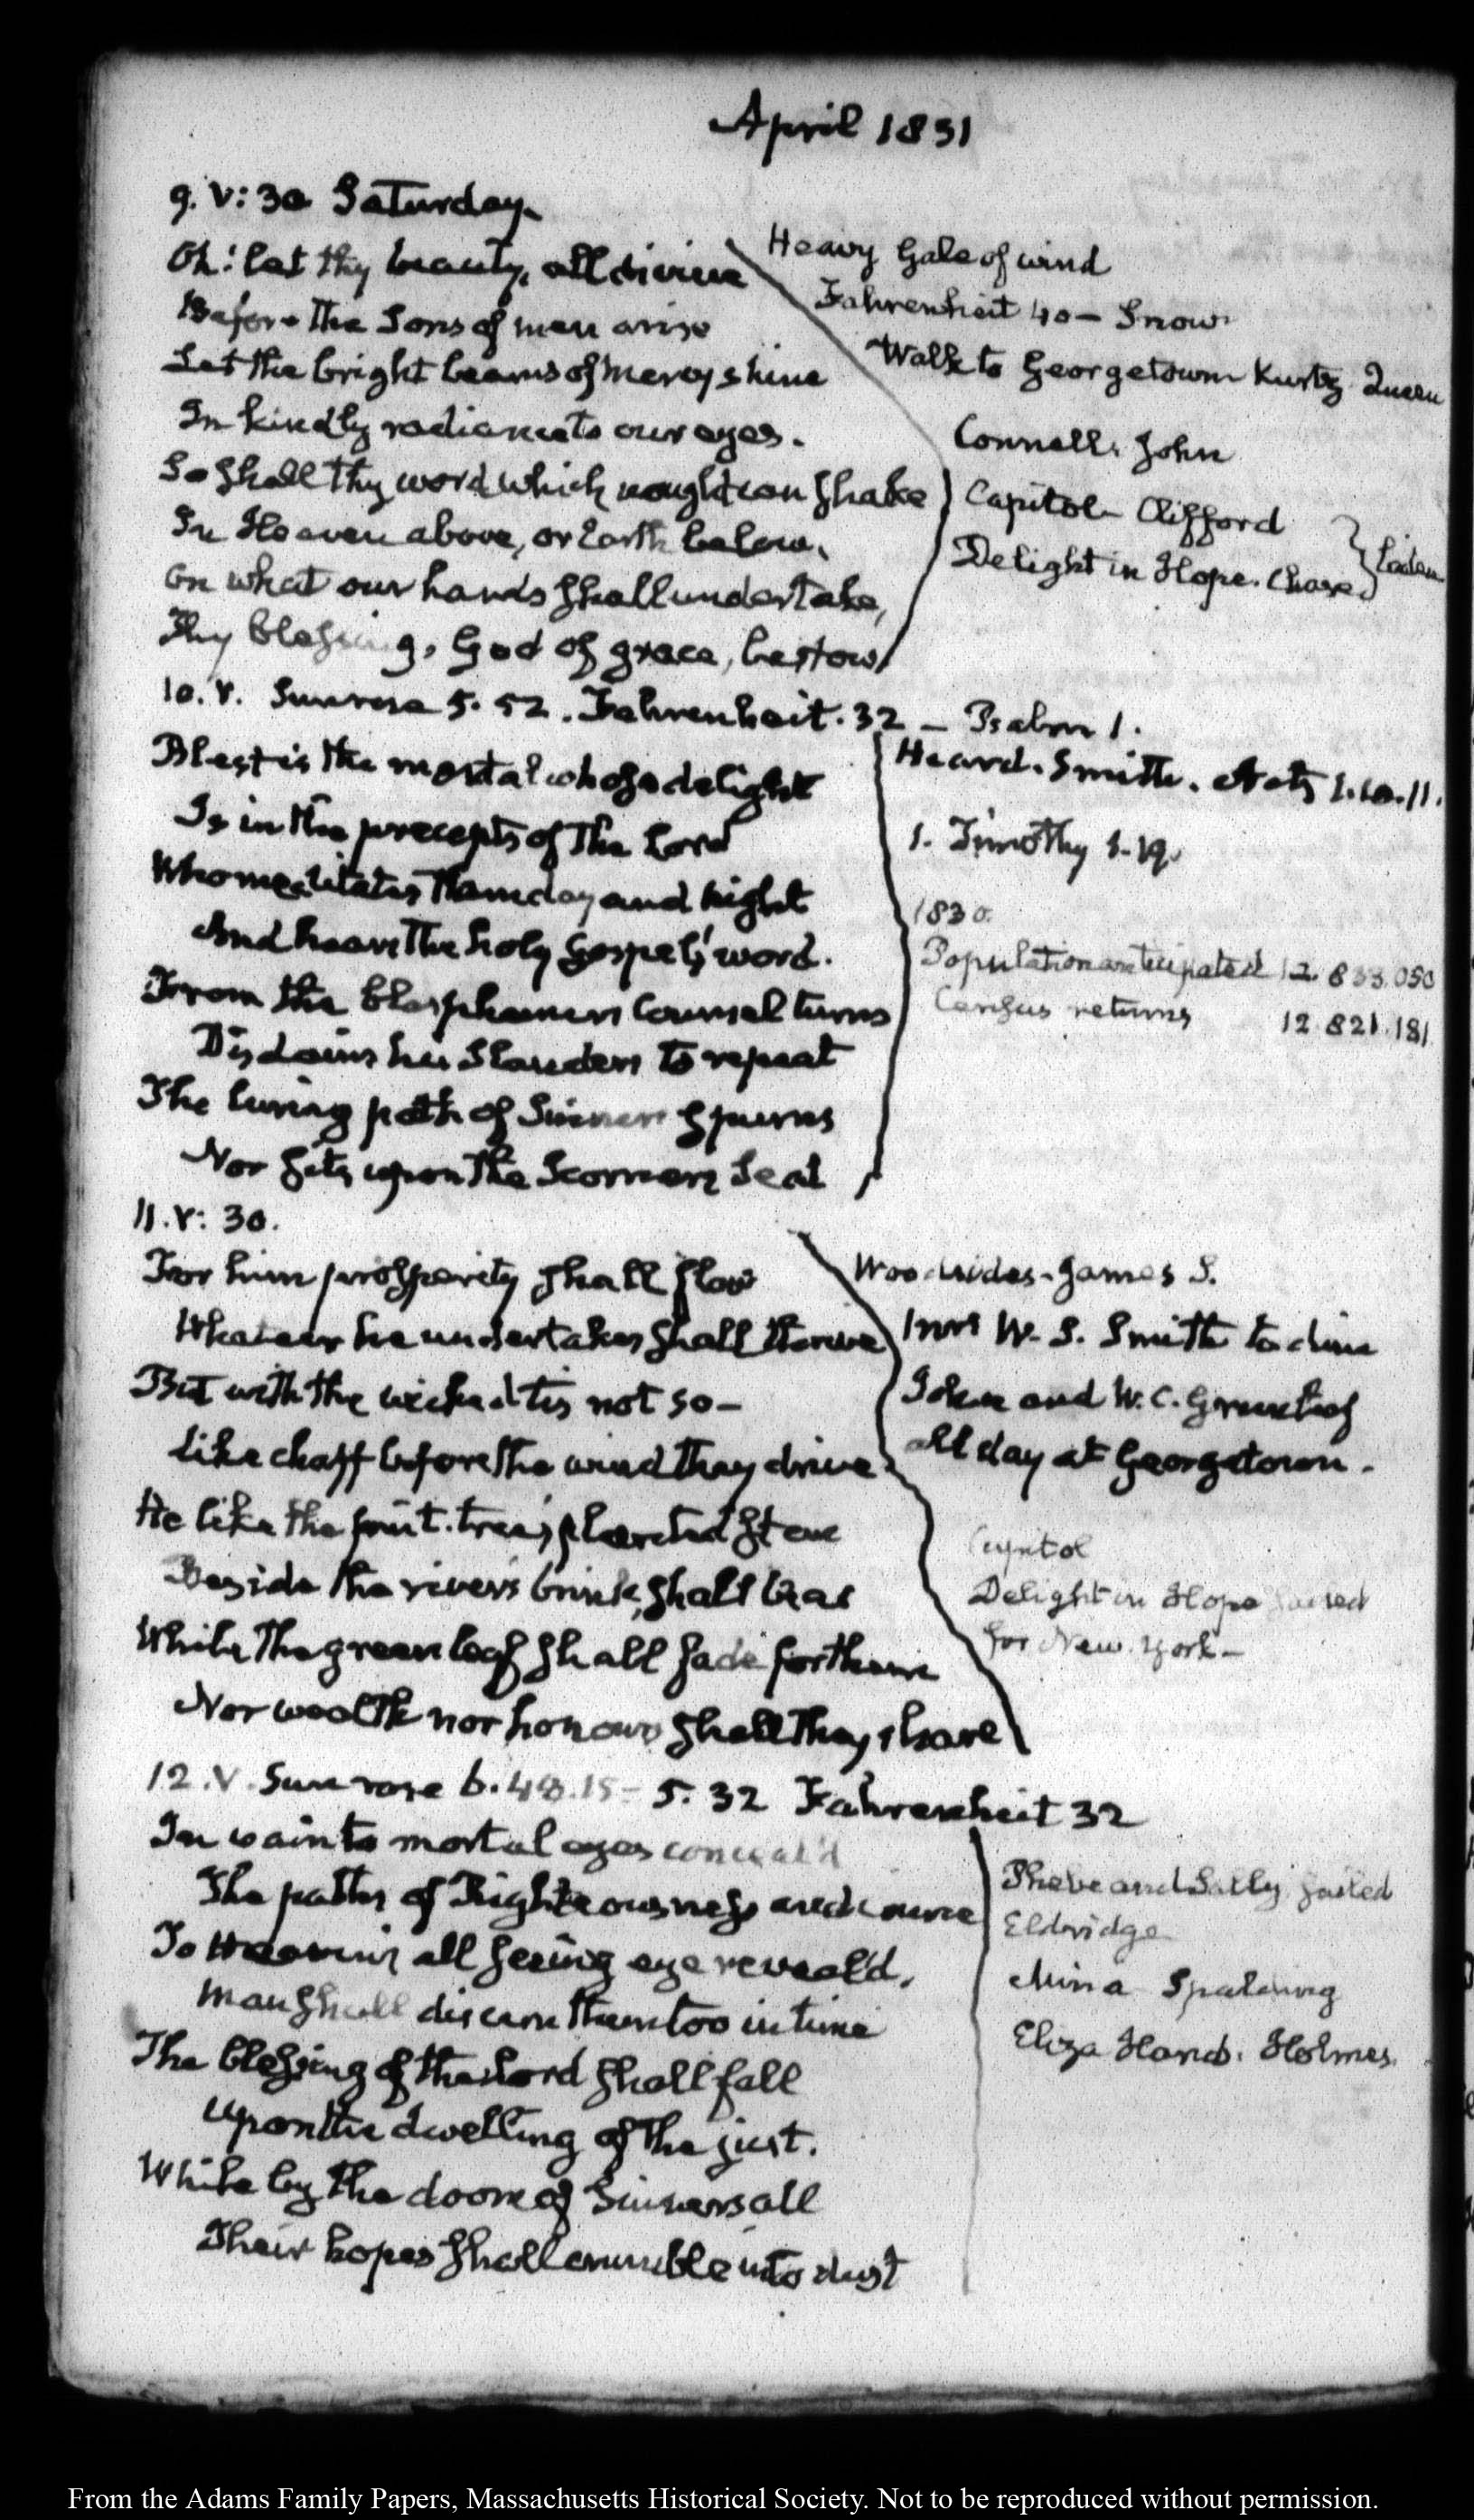 April 1831
9. V: 30 Saturday.
Oh! let thy beauty, all divine
Before the Sons of men arise
Let the bright beams of mercy shine
In kindly radiance to our eyes.
So shall thy word which nought can shake
In Heaven above, or Earth below,
On what our hands shall undertake,
Thy blessing, God of grace, bestow
Heavy Gale of wind
Fahrenheit 40 — Snow
Walk to Georgetown Kurtz Queen
Connell. John
Capitol Clifford
Delight in Hope. Chase
Laden
10. V. Sunrose 5. 52. Fahrenheit. 32 — Psalm 1.
Blest is the mortal whose delight
Is in the precepts of the Lord
Who meditates them day and night
And hears the holy Gospel's word.
From the blasphemers Counsel turns
Disdains his Slanders to repeat
The luring path of Sinners spurns
Nor sits upon the Scorners Seat
Heard. Smith. Acts 1.10.11.
1. Timothy 1-19.
1830.
Population anticipated 12.833.050
Census returns 12.821.181
11. V: 30.
For him prosperity shall flow
Whate'er he undertakes shall thrive
But with the wicked tis not so —
Like chaff before the wind they drive
He like the fruit-tree's planted stem
Beside the river's brink, shall bear
While the green leaf shall fade for them
Nor wealth nor honours shall they share
James S.
Mrs W. S. Smith to dine
John and W. C. Greenleaf
all day at Georgetown.
Capitol
Delight in Hope sailed
for New-York —
12. V. Sun rose 6. 48.15 - 5. 32 Fahrenheit 32
In vain to mortal eyes conceal'd
The paths of Righteousness and crime
To Heaven's all seeing eye reveal'd,
Man shall discern them too in time
The blessing of the Lord shall fall
Upon the dwelling of the just.
While by the doom of Sinners all
Their hopes shall crumble into dust
Phebe and Sally sailed
Eldridge
Mina Spalding
Eliza Hand. Holmes.
From the Adams Family Papers, Massachusetts Historical Society. Not to be reproduced without permission.